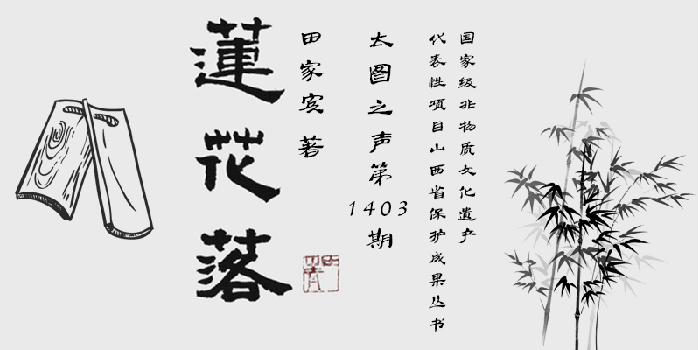 国家级非物质文化遗产
代表性项目山西省保护成果丛书
太图之声第1403期
田家宾 著
蓮花落